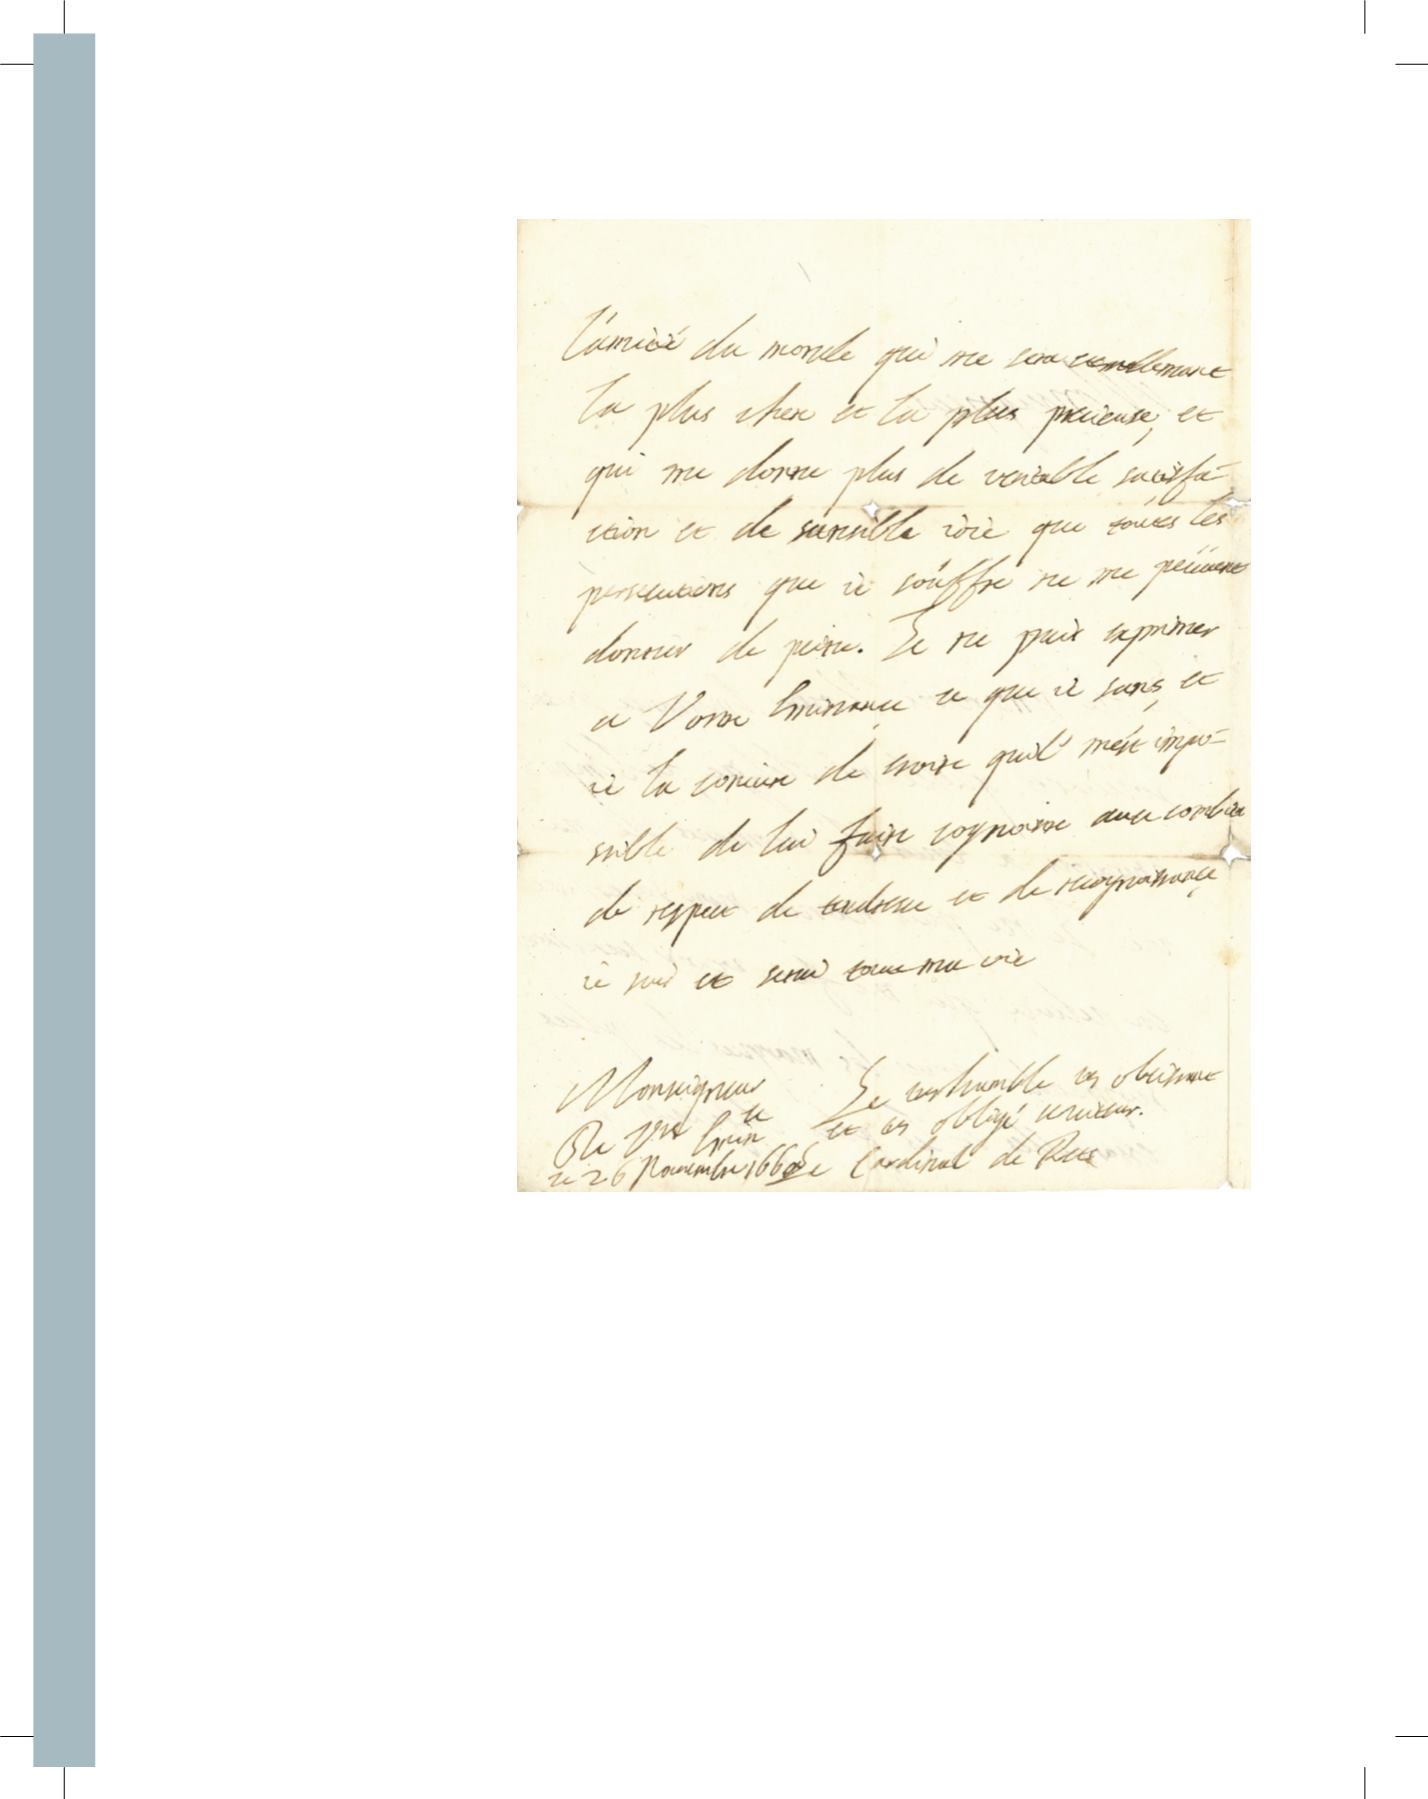 l'amitié du monde qui me sera eternellement
la plus chere et la plus precieuse, et
qui me donne plus de veritable satisfa-
ction et de sansible ioie que toutes les
persecutions que ie souffre ne me peuuent
donner de peine. Je ne puis exprimer
a Vostre Eminance ce que ie sans, et
ie la coniure de croire quil m'est impo-
ssible de lui faire cognoistre auec combien
de respect de tendresse et de recognoissance
ie suis et serai toute ma vie
Monseigneur Le tres humble tres obeissant
De Vre Emin ce et tres obligé seruiteur.
ce 26 Nouembre Le Cardinal de Rets